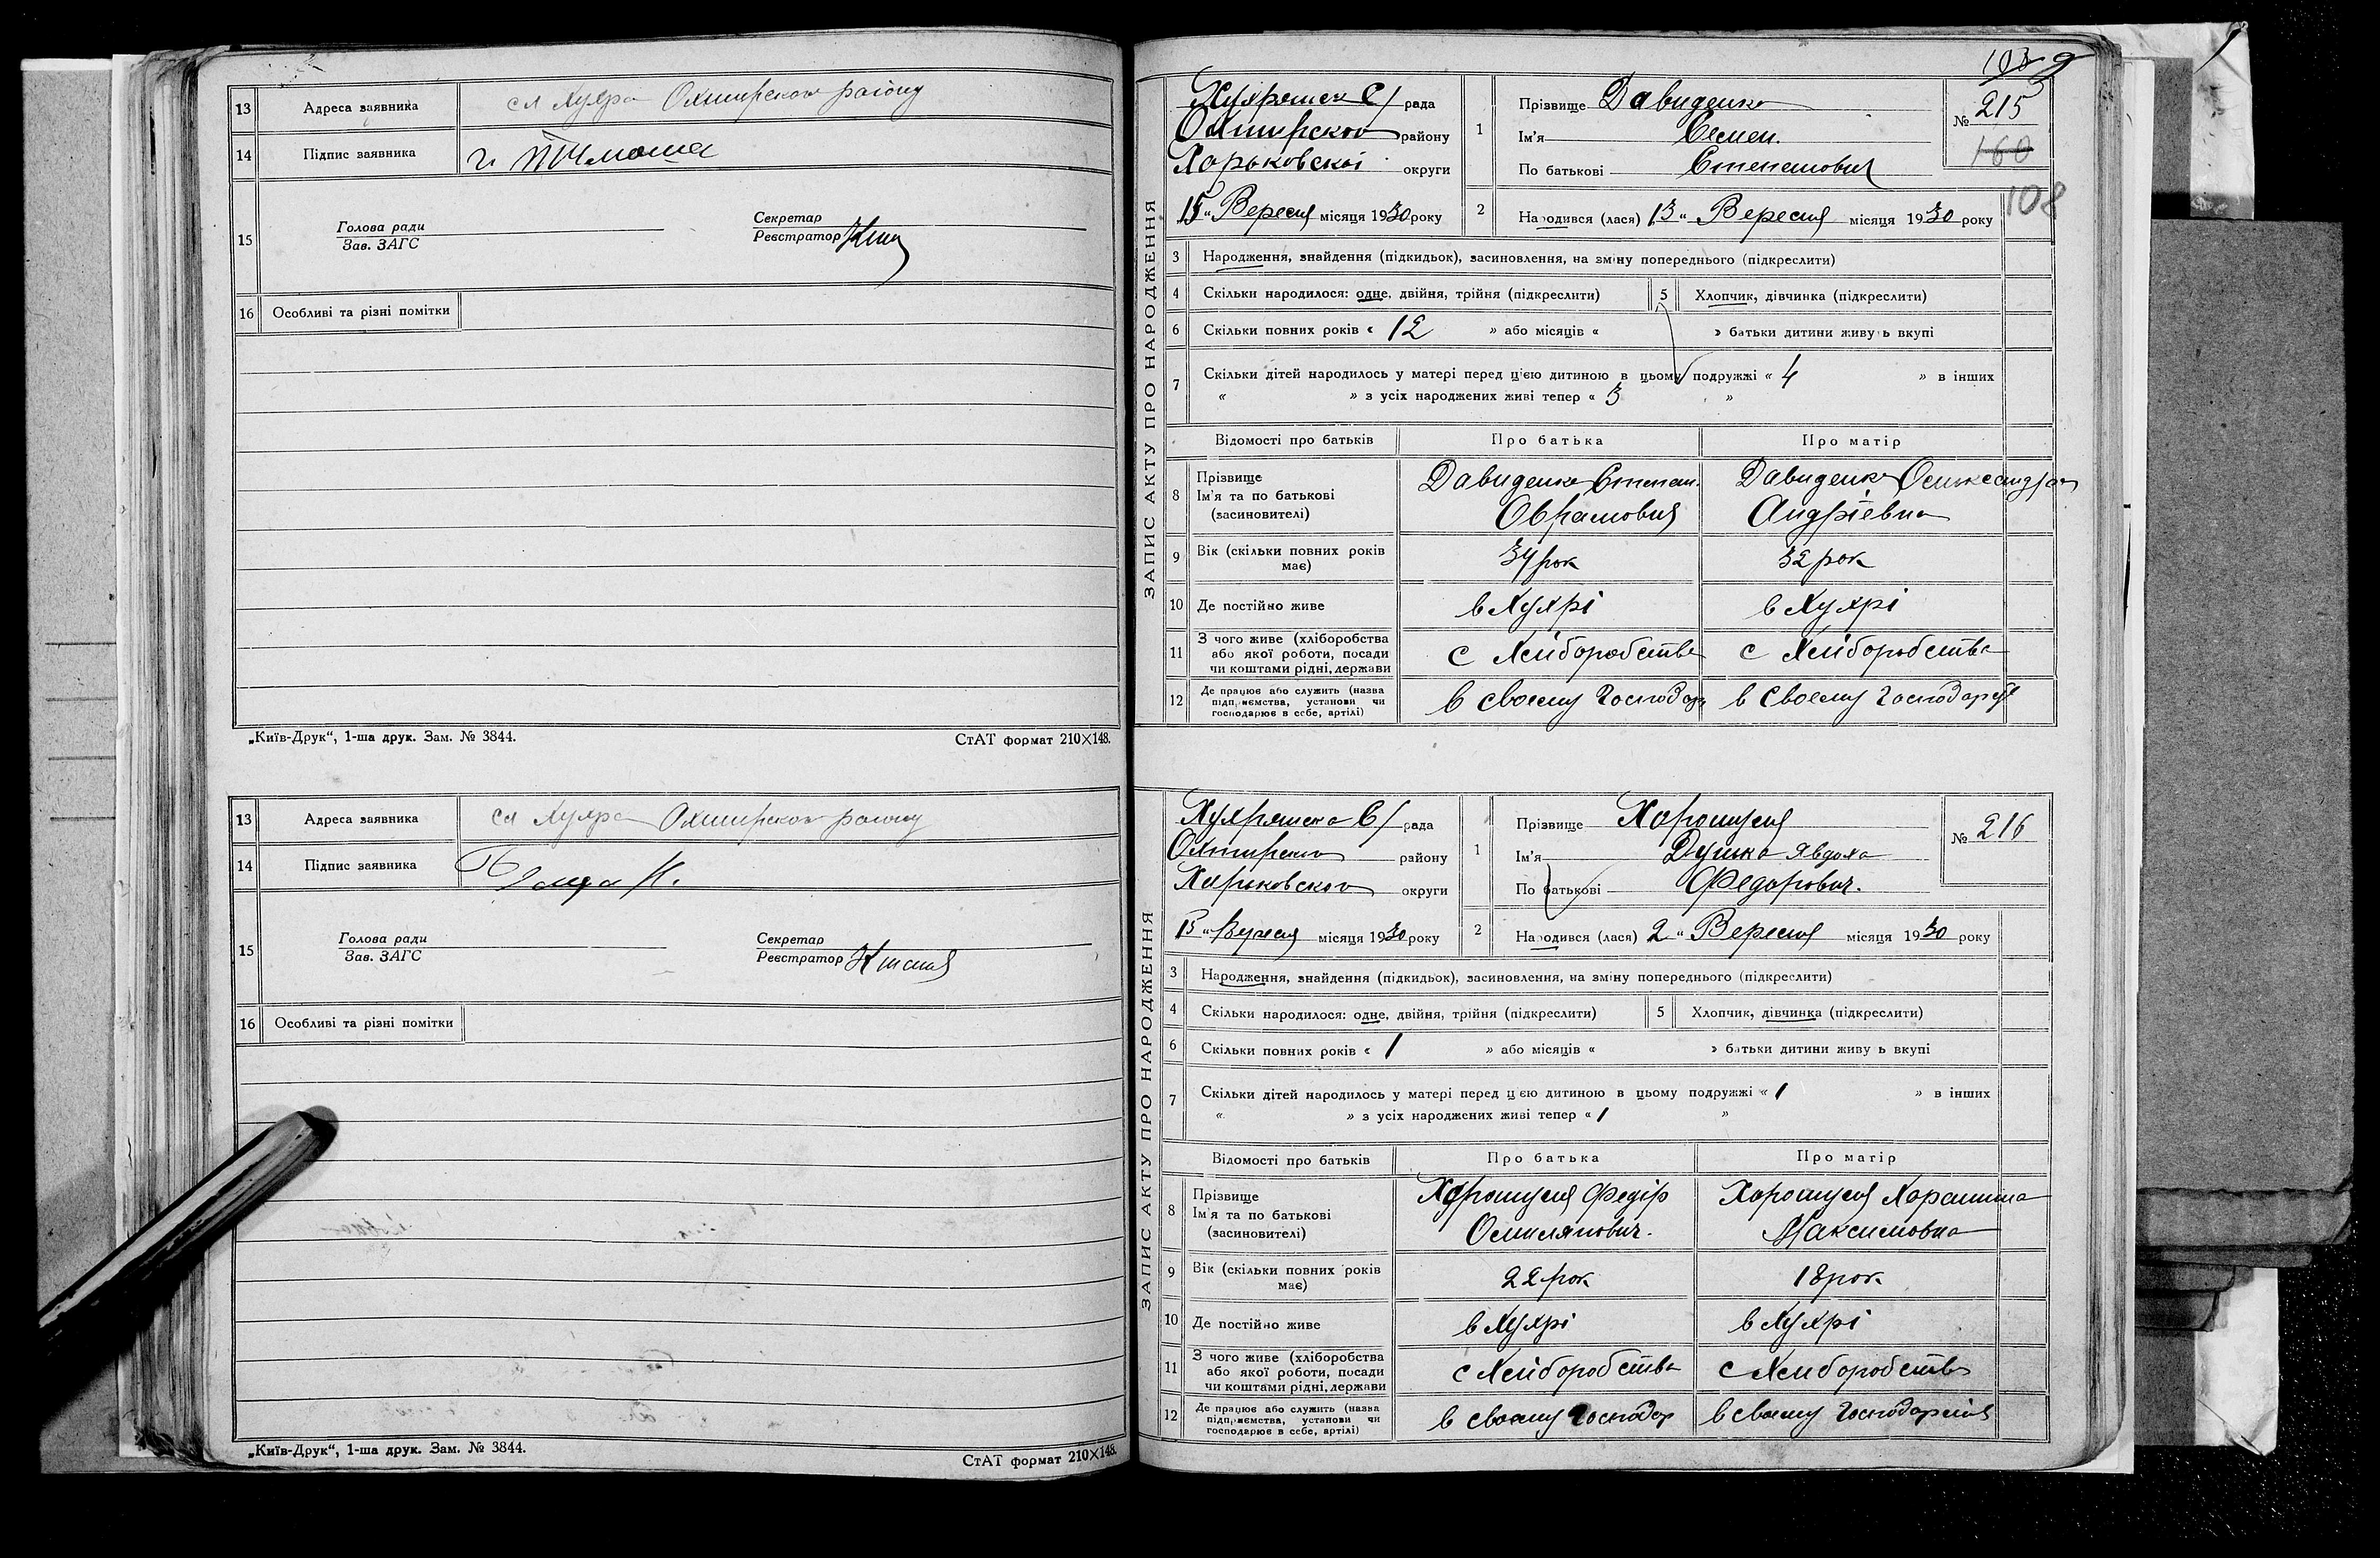 13 Адреса заявника сл Хухра Охтирского району
14 Підпис заявника
15 Голова ради Секретар
Зав. ЗАГС Реєстратор
16 Особливі та різні помітки
„Київ-Друк“, 1-ша друк. Зам. № 3844. СтАТ формат 210×148.
13 Адреса заявника сл Хухра Охтирского району
14 Підпис заявника
15 Голова ради Секретар
Зав. ЗАГС Реєстратор
16 Особливі та різні помітки
„Київ-Друк“, 1-ша друк. Зам. № 3844. СтАТ формат 210×148.
ЗАПИС АКТУ ПРО НАРОДЖЕННЯ
рада
Охтирского району
Харьковскої округи
15 „ Вересня місяця 1930 року
1 Прізвище Давиденко
Ім'я Семен.
По батькові Степанович
№ 215
160
108
2 Народився (лася) 13 „ Вересня місяця 1930 року
3 Народження, знайдення (підкидьок), засиновлення, на зміну попереднього (підкреслити)
4 Скільки народилося: одне, двійня, трійня (підкреслити) 5 Хлопчик, дівчинка (підкреслити)
6 Скільки повних років « 12 » або місяців « » батьки дитини живуть вкупі
7 Скільки дітей народилось у матері перед цією дитиною в цьому подружжі « 4 » в інших
« » з усіх народжених живі тепер « 3 »
Відомості про батьків Про батька Про матір
8 Прізвище Ім'я та по батькові (засиновителі) Давиденко Степан. Оврамович Давиденко Олександра Андріевна
9 Вік (скільки повних років має) 34 рок 32 рок
10 Де постійно живе в Хухрі в Хухрі
11 З чого живе (хліборобства або якої роботи, посади чи коштами рідні, держави с Хліборобства с Хліборобства
12 Де працює або служить (назва підприємства, установи чи господарює в себе, артілі) в своему Господар в своему Господарстве
ЗАПИС АКТУ ПРО НАРОДЖЕННЯ
рада
району
Харьковского округи
15 „ Вересня місяця 1930 року
1 Прізвище Хорошун
Ім'я Явдоха
По батькові Федорович.
№ 216
2 Народився (лася) 2 „ Вересня місяця 1930 року
3 Народження, знайдення (підкидьок), засиновлення, на зміну попереднього (підкреслити)
4 Скільки народилося: одне, двійня, трійня (підкреслити) 5 Хлопчик, дівчинка (підкреслити)
6 Скільки повних років « 1 » або місяців « » батьки дитини живуть вкупі
7 Скільки дітей народилось у матері перед цією дитиною в цьому подружжі « 1 » в інших
« » з усіх народжених живі тепер « 1 »
Відомості про батьків Про батька Про матір
8 Прізвище Ім'я та по батькові (засиновителі) Хорошун Федір Омилянович. Хорошун Максимовна
9 Вік (скільки повних років має) 22 рок 18 рок
10 Де постійно живе в Хухрі в Хухрі
11 З чого живе (хліборобства або якої роботи, посади чи коштами рідні, держави с Хліборобства с Хліборобства
12 Де працює або служить (назва підприємства, установи чи господарює в себе, артілі) в своему Господар в своему Господарстві